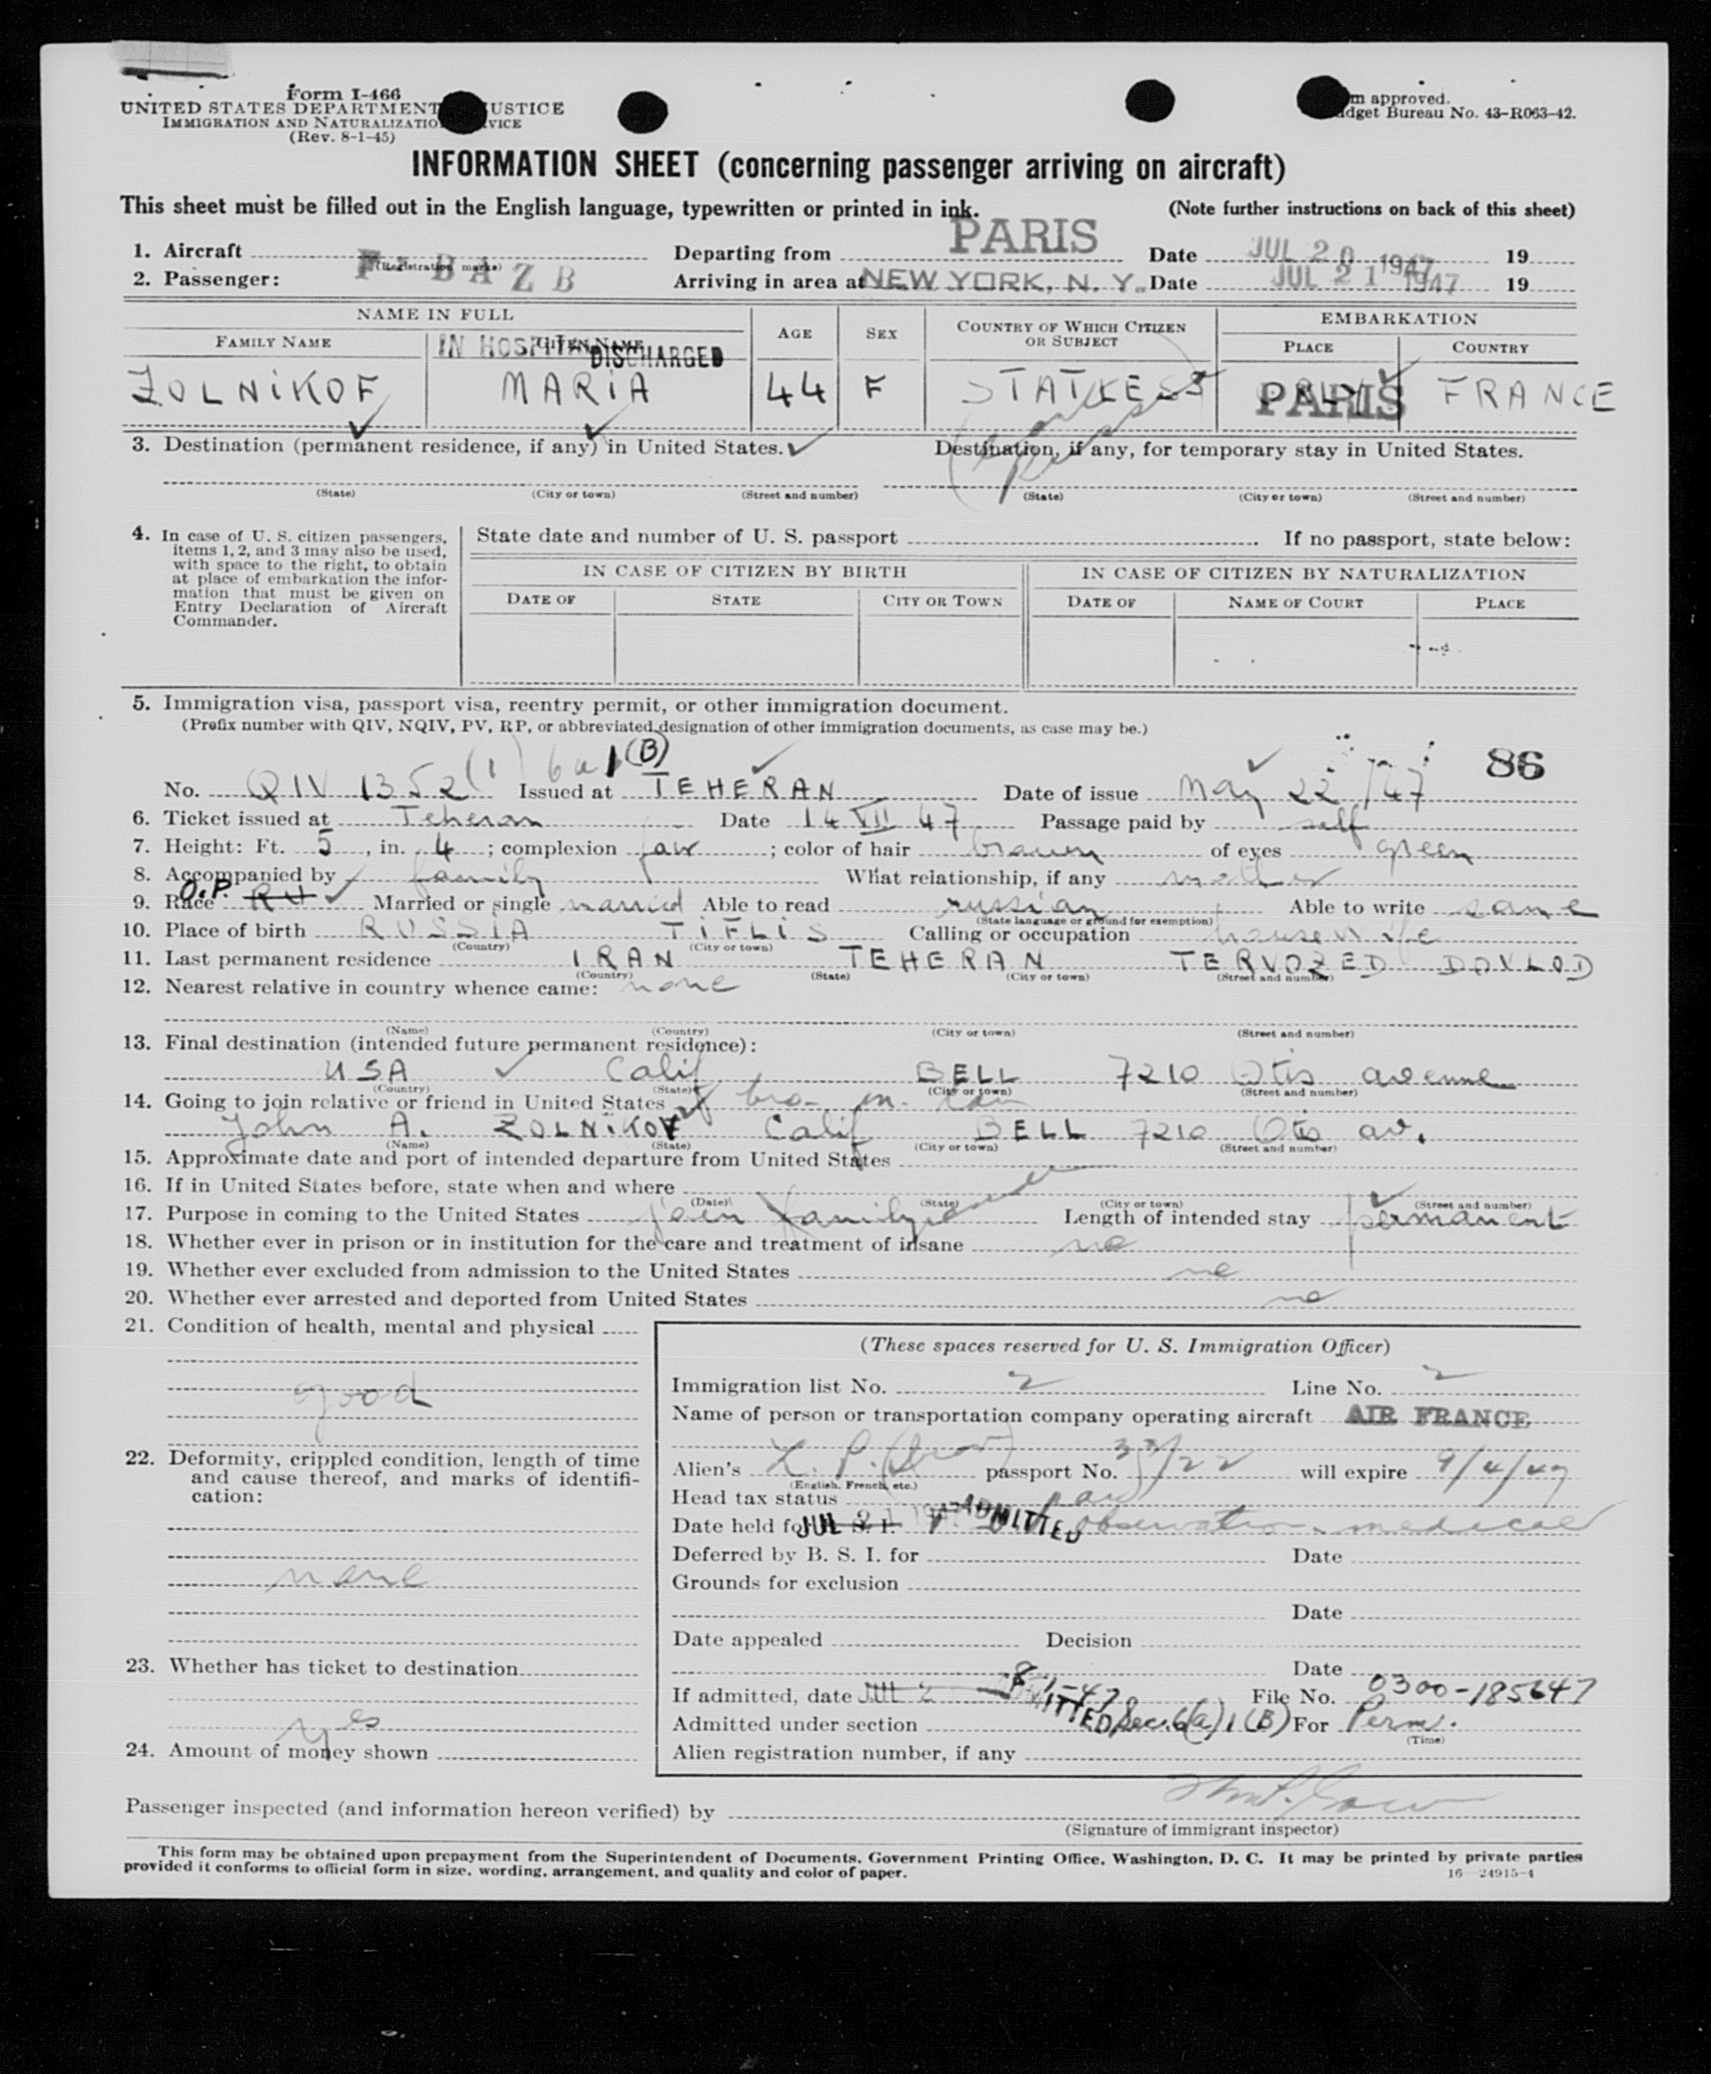 Form I-466
UNITED STATES DEPARTMENT JUSTICE
IMMIGRATION AND NATURALIZATION SERVICE
(Rev. 8-1-45)
approved.
Budget Bureau No. 43-R063-42.
INFORMATION SHEET (concerning passenger arriving on aircraft)
This sheet must be filled out in the English language, typewritten or printed in ink. (Note further instructions on back of this sheet)
1. Aircraft F-BAZB Departing from PARIS Date JUL 20 1947 19
(Registration marks)
2. Passenger: Arriving in area at NEW YORK, N. Y. Date JUL 21 1947 19
NAME IN FULL AGE SEX COUNTRY OF WHICH CITIZEN OR SUBJECT EMBARKATION
FAMILY NAME GIVEN NAME PLACE COUNTRY
IN HOSPITAL DISCHARGED
ZOLNIKOF MARIA 44 F STATLESS PARIS FRANCE
3. Destination (permanent residence, if any) in United States. Destination, if any, for temporary stay in United States.
(State) (City or town) (Street and number) (State) (City or town) (Street and number)
4. In case of U. S. citizen passengers, items 1, 2, and 3 may also be used, with space to the right, to obtain at place of embarkation the information that must be given on Entry Declaration of Aircraft Commander.
State date and number of U. S. passport If no passport, state below:
IN CASE OF CITIZEN BY BIRTH IN CASE OF CITIZEN BY NATURALIZATION
DATE OF STATE CITY OR TOWN DATE OF NAME OF COURT PLACE
5. Immigration visa, passport visa, reentry permit, or other immigration document.
(Prefix number with QIV, NQIV, PV, RP, or abbreviated designation of other immigration documents, as case may be.)
6a1(B) 86
No. QIV 1352 Issued at TEHERAN Date of issue May 22/47
6. Ticket issued at Teheran Date 14 VII 47 Passage paid by self
7. Height: Ft. 5, in. 4; complexion fair; color of hair brown of eyes green
8. Accompanied by family What relationship, if any mother
O.P.
9. Race RU Married or single married Able to read russian Able to write same
(State language or ground for exemption)
10. Place of birth RUSSIA TIFLIS Calling or occupation housewife
(Country) (City or town)
11. Last permanent residence IRAN TEHERAN TERVOZED DOVLOD
(Country) (State) (City or town) (Street and number)
12. Nearest relative in country whence came: none
(Name) (Country) (City or town) (Street and number)
13. Final destination (intended future permanent residence):
USA Calif BELL 7210 Otis avenue
(Country) (State) (City or town) (Street and number)
14. Going to join relative or friend in United States bro-in-law
John A. ZOLNIKOF Calif BELL 7210 Otis av.
(Name) (State) (City or town) (Street and number)
15. Approximate date and port of intended departure from United States
16. If in United States before, state when and where
(Date) (State) (City or town) (Street and number)
17. Purpose in coming to the United States join family Length of intended stay permanent
18. Whether ever in prison or in institution for the care and treatment of insane no
19. Whether ever excluded from admission to the United States no
20. Whether ever arrested and deported from United States no
21. Condition of health, mental and physical
good
22. Deformity, crippled condition, length of time and cause thereof, and marks of identification:
none
23. Whether has ticket to destination
yes
24. Amount of money shown
(These spaces reserved for U. S. Immigration Officer)
Immigration list No. 2 Line No. 2
Name of person or transportation company operating aircraft AIR FRANCE
Alien's L. P. (Iran) passport No. 33/22 will expire 9/4/47
(English, French, etc.)
Head tax status paid
Date held for S. I. JUL 21 1947 ADMITTED observation medical
Deferred by B. S. I. for Date
Grounds for exclusion
Date
Date appealed Decision
Date
If admitted, date JUL 2 8-1-47 File No. 0300-185647
ADMITTED
Admitted under section Sec. 6(a)1(B) For Perm.
(Time)
Alien registration number, if any
Passenger inspected (and information hereon verified) by
(Signature of immigrant inspector)
This form may be obtained upon prepayment from the Superintendent of Documents, Government Printing Office, Washington, D. C. It may be printed by private parties
provided it conforms to official form in size, wording, arrangement, and quality and color of paper.
16—24915-4